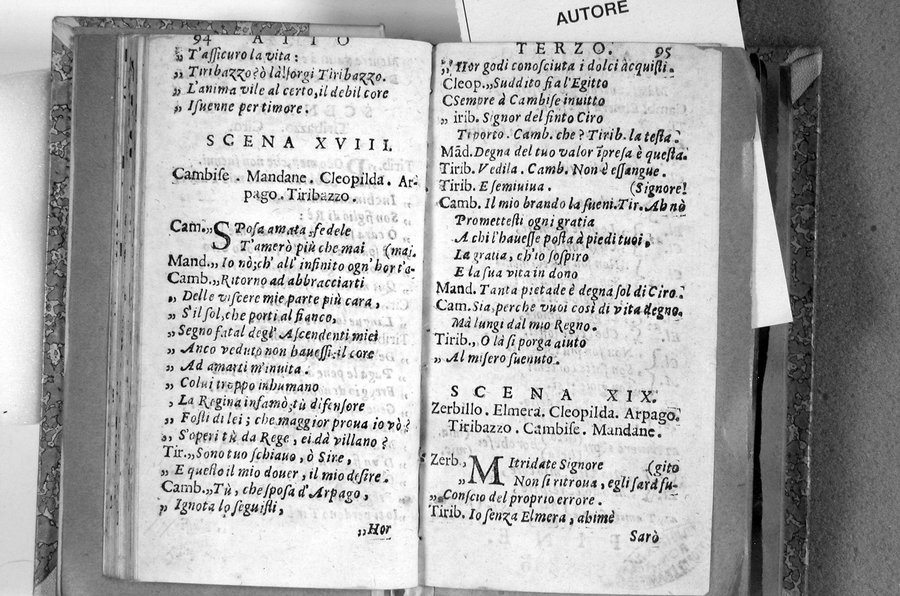 AUTORE
94 ATTO
„ T'assicuro la vita:
„ Tiribazzo? ò là! sorgi Tiribazzo.
„ L'anima vile al certo, il debil core
„ Isuenne per timore.
SCENA XVIII.
Cambise. Mandane. Cleopilda. Ar-
pago. Tiribazzo.
Cam.„ SPosa amata, fedele
T'amerò più che mai (mai.
Mand.„ Io nò; ch' all' infinito ogn' hor t'a-
Camb.„ Ritorno ad abbracciarti
„ Delle viscere mie parte più cara,
„ S'il sol, che porti al fianco,
„ Segno fatal degl' Ascendenti miei
„ Anco veduto non hauessi, il core
„ Ad amarti m'inuita.
„ Colui troppo inhumano
„ La Regina infamò; tù difensore
„ Fosti di lei; che maggior proua io vò?
„ S'operi tù da Rege, ei dà villano?
Tir.„ Sono tuo schiauo, ò Sire,
„ E questo il mio douer, il mio desire.
Camb.„ Tù, che sposa d'Arpago,
„ Ignota lo seguisti,
„ Hor
TERZO. 95
„ Hor godi conosciuta i dolci acquisti.
Cleop.„ Suddito fia l'Egitto
CSempre à Cambise inuitto
„ irib. Signor del finto Ciro
Ti porto. Camb. che? Tirib. la testa.
Mād. Degna del tuo valor īpresa è questa.
Tirib. Vedila. Camb. Non è essangue.
Tirib. E semiuiua. (Signore!
Camb. Il mio brando la sueni. Tir. Ah nò
Promettesti ogni gratia
A chi l'hauesse posta à piedi tuoi,
La gratia, ch'io sospiro
E la sua vita in dono
Mand. Tanta pietade è degna sol di Ciro.
Cam. Sia, perche vuoi così di vita degno,
Mà lungi dal mio Regno.
Tirib.„ O là si porga aiuto
„ Al misero suenuto.
SCENA XIX.
Zerbillo. Elmera. Cleopilda. Arpago.
Tiribazzo. Cambise. Mandane.
Zerb.„ MItridate Signore (gito
„ Non si ritroua, egli sarà fu-
„ Conscio del proprio errore.
Tirib. Io senza Elmera, ahimè
Sarò